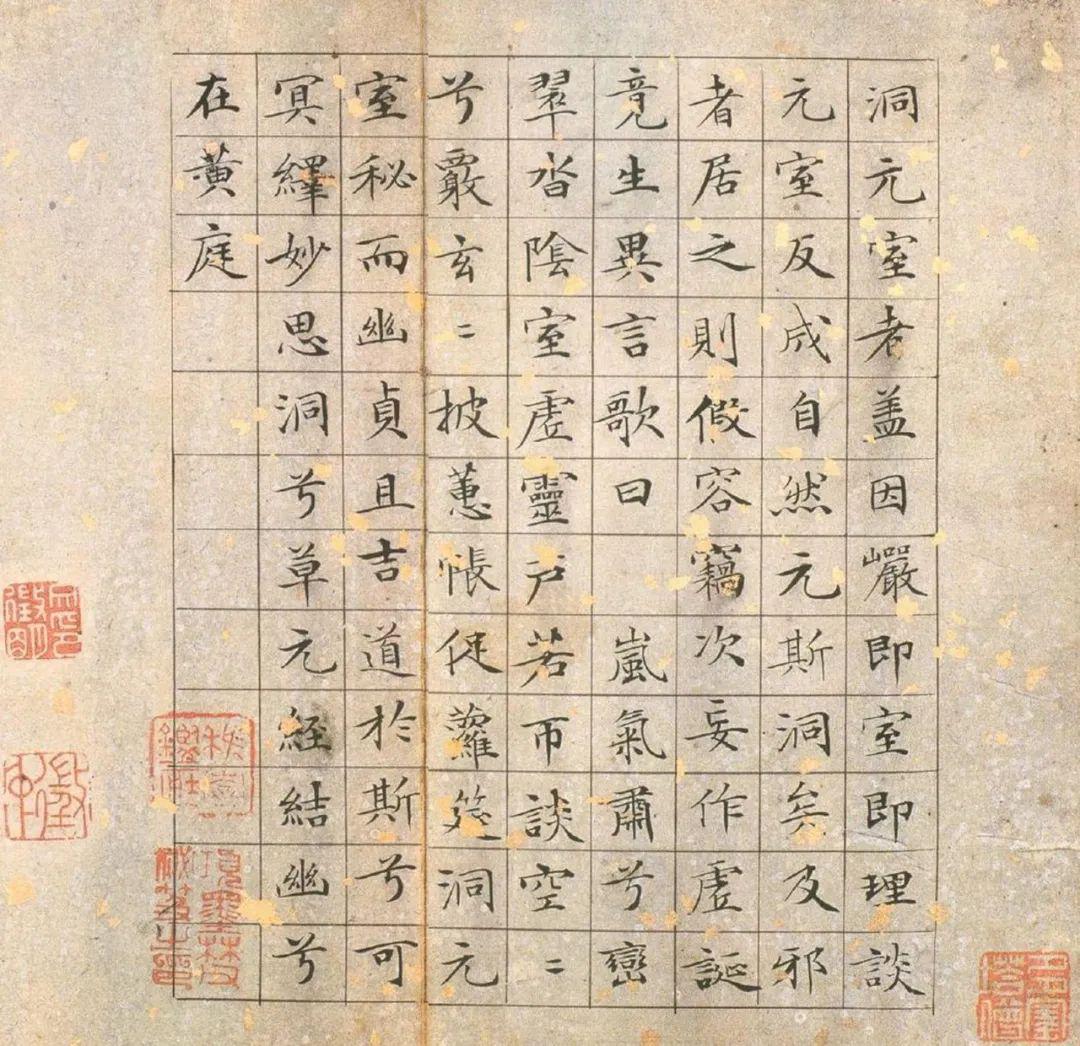 洞元室者盖因巖即室即理談
元室反成自然元斯洞矣及邪
者居之則假容竊次妄作虛誕
竟生異言歌曰 嵐氣肅兮巒
翠沓陰室虛靈戶若帀談空〻
兮覈玄〻披蕙帳促蘿筵洞元
室秘而幽貞且吉道於斯兮可
冥繹妙思洞兮草元經結幽兮
在黃庭
項墨林父秘笈之印